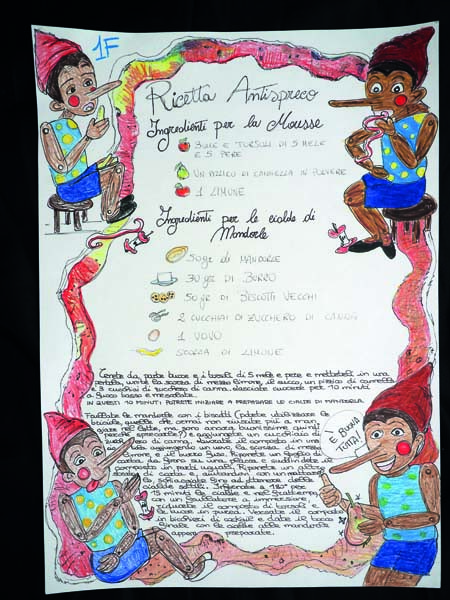 1F
Ricetta Antispreco
Ingredienti per la Mousse
BUCE E TORSOLI DI 5 MELE
E 5 PERE
UN PIZZICO DI CANNELLA IN POLVERE
1 LIMONE
Ingredienti per le cialde di
Mandorle
50 gr DI MANDORLE
30 gr DI BURRO
50 gr DI BISCOTTI VECCHI
2 CUCCHIAI DI ZUCCHERO DI CANNA
1 UOVO
SCORZA DI LIMONE
Tenete da parte bucce e i torsoli di 5 mele e pere e metteteli in una
pentola, unite la scorza di mezzo limone, il succo, un pizzico di cannella
e 3 cucchiai di zucchero di canna. Lasciate cuocere per 10 minuti
a fuoco basso e mescolate.
IN QUESTI 10 MINUTI POTRETE INIZIARE A PREPARARE LE CIALDE DI MANDORLA.
Frullate le mandorle con i biscotti (potete utilizzare le
briciole, quelle che ormai non riuscite più a man-
giare nel latte, ma sono ancora buonissime quindi
perché sprecarle?) e aggiungete un cucchiaio di
zucchero di canna, il composto in una
aggiungendo un uovo, la scorza di mezzo
limone e il burro fuso. Riponete un foglio di
carta da forno su una placca e suddividete il
composto in parti uguali. Riponete un altro
foglio di carta e, aiutandovi con un mattarello
schiacciate fino ad ottenere delle
cialde sottili. Infornate a 180° per
15 minuti le cialde e nel frattempo,
con un frullatore a immersione,
riducete il composto di torsoli e
bucce in purea. Versate il composto
in bicchieri di cocktail e date il tocco
finale con le cialde alle mandorle
appena preparate.
È BUONA
TUTTA!